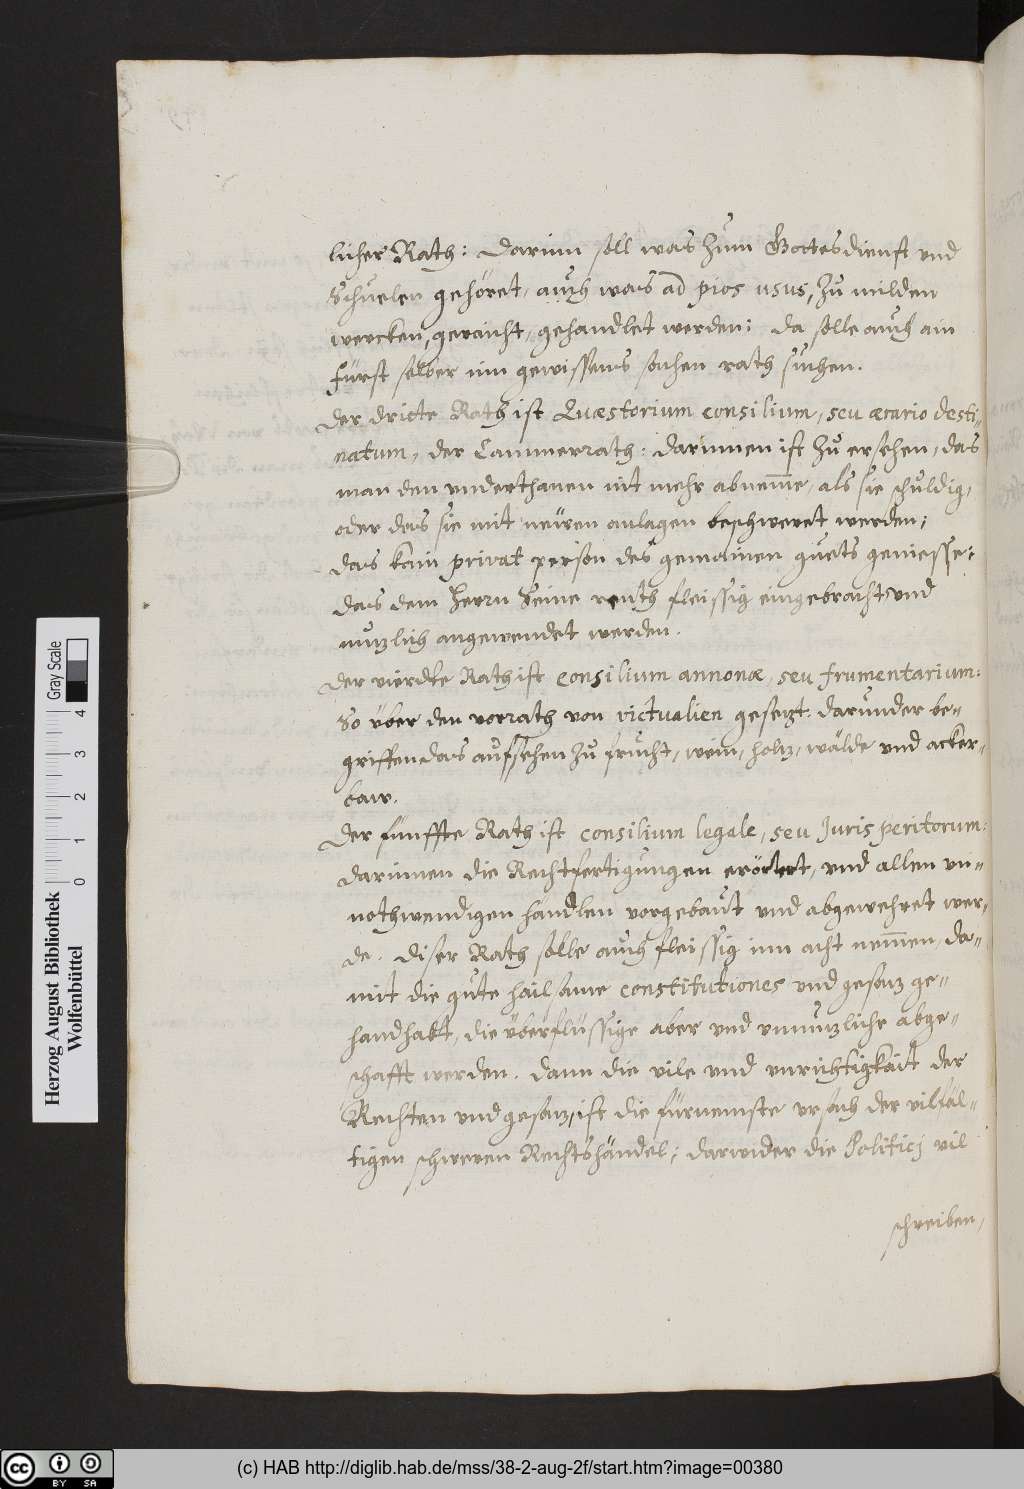 licher Rath: Darinn soll was zum Gottesdienst vnd
Schuelen gehöret, auch was ad pios usus, zu milden
wercken, geraicht, gehandlet werden: da solle auch ain
Fürst selber inn gewissens sachen rath suchen.
Der dritte Rath ist Quæstorium consilium, seu ærario desti-
natum, der Cammerrath: darinnen ist zu ersehen, das
man den vnderthanen nit mehr abneme, als sie schuldig,
oder das sie mit neüwen anlagen beschweret werden;
das kain privat person des gemainen guets geniesse:
das dem Herrn Seine renth fleissig eingebracht vnd
nutzlich angewendet werden.
Der vierdte Rath ist consilium annonæ, seu frumentarium:
So über den vorrath von victualien gesetzt: darunder be-
griffen das aufsehen zu frucht, wein, holtz, wälde vnd acker-
baw.
Der fünffte Rath ist consilium legale, seu Juris peritorum:
darinnen die Rechtfertigungen erörtert, vnd allen un-
nothwendigen händlen vorgebaut vnd abgewehret wer-
de. Diser Rath solle auch fleissig inn acht nemmen, da-
mit die gute hailsame constitutiones vnd gesatz ge-
handhabt, die überflüssige aber vnd vnnutzliche abge-
schafft werden. Dann die vile vnd vnrichtigkait der
Rechten vnd gesatz, ist die fürnemste vrsach der vilfäl-
tigen schweren Rechtshändel; darwider die Politicj vil
schreiben,
Herzog August Bibliothek
Wolfenbüttel
Gray Scale
0 1 2 3 4
cc BY SA
(c) HAB http://diglib.hab.de/mss/38-2-aug-2f/start.htm?image=00380